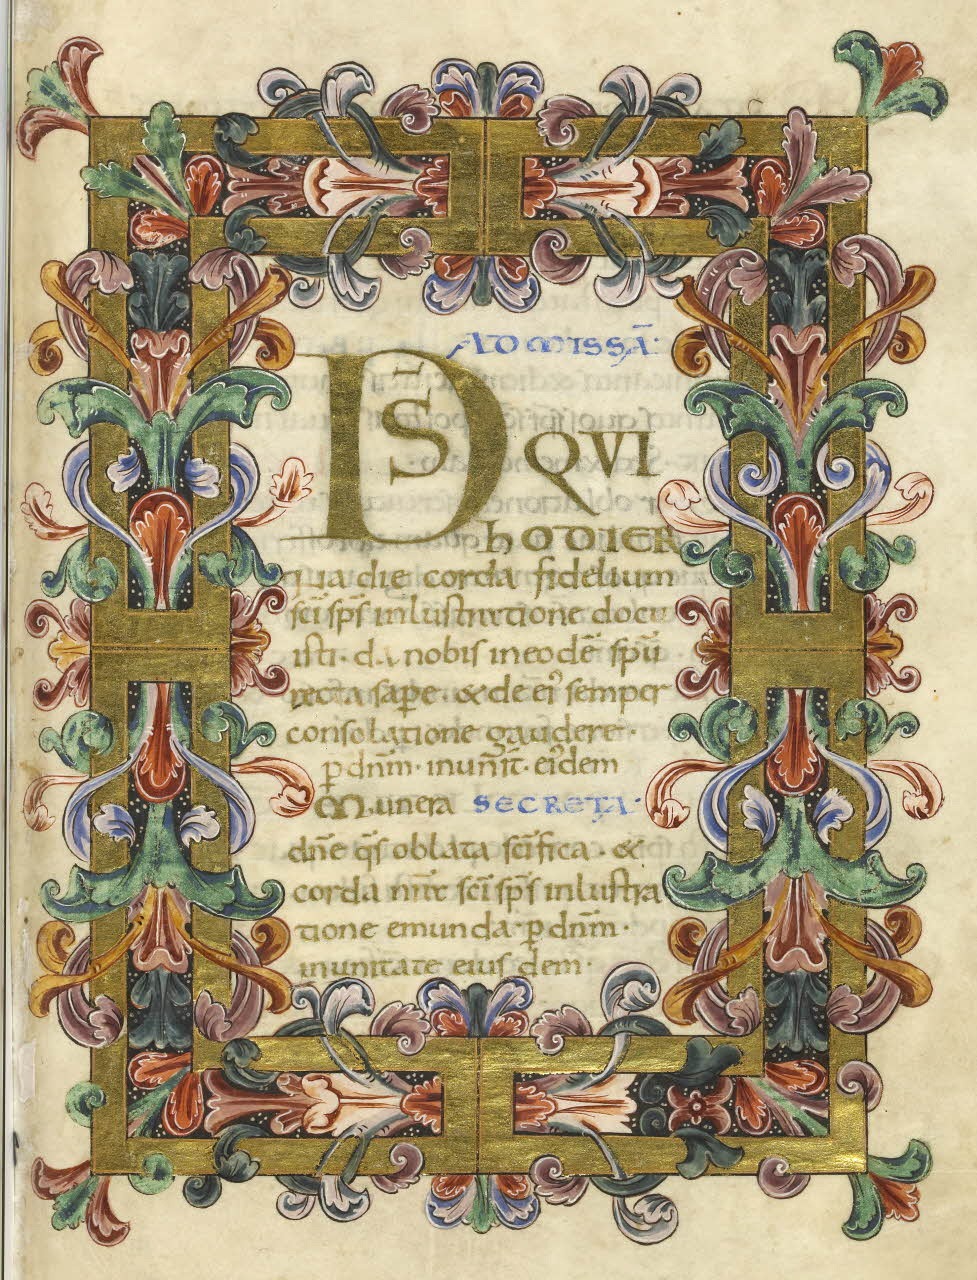 AD MISSĀ·
DS QVI
hODIER
na die corda fidelium
sc̄i sp̄s inlustratione docu
isti· da nobis in eodē sp̄u
recta sape & de ei᾽ semper
consolatione gaudere·
p̄ dn̄m· in un̄it· ei᾽dem
Munera SECRETA·
dn̄e q̄s oblata sc̄ifica· &
corda nr̄a sc̄i sp̄s inlustra
tione emunda· p̄ dn̄m·
in unitate eius dem·